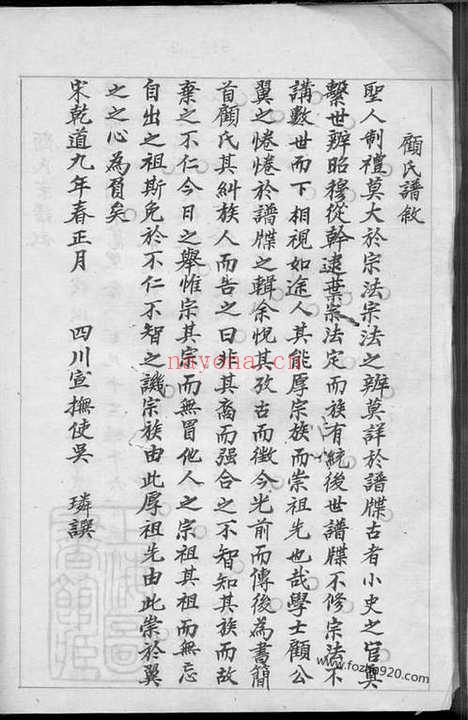 顧氏譜敘
聖人制禮莫大於宗法宗法之辨莫詳於譜牒古者小史之官奠
繫世辨昭穆從幹逮葉宗法定而族有統後世譜牒不修宗法不
講數世而下相視如途人其能厚宗族而崇祖先也哉學士顧公
翼之惓惓於譜牒之輯余悅其孜古而徵今光前而傳後為書簡
首顧氏其糾族人而告之曰非其裔而强合之不智知其族而故
棄之不仁今日之舉惟宗其宗而無冒他人之宗祖其祖而無忘
自出之祖斯免於不仁不智之譏宗族由此厚祖先由此崇於翼
之之心為負矣
宋乾道九年春正月 四川宣撫使吳 璘譔
nayona.cn
www.fozhu920.com